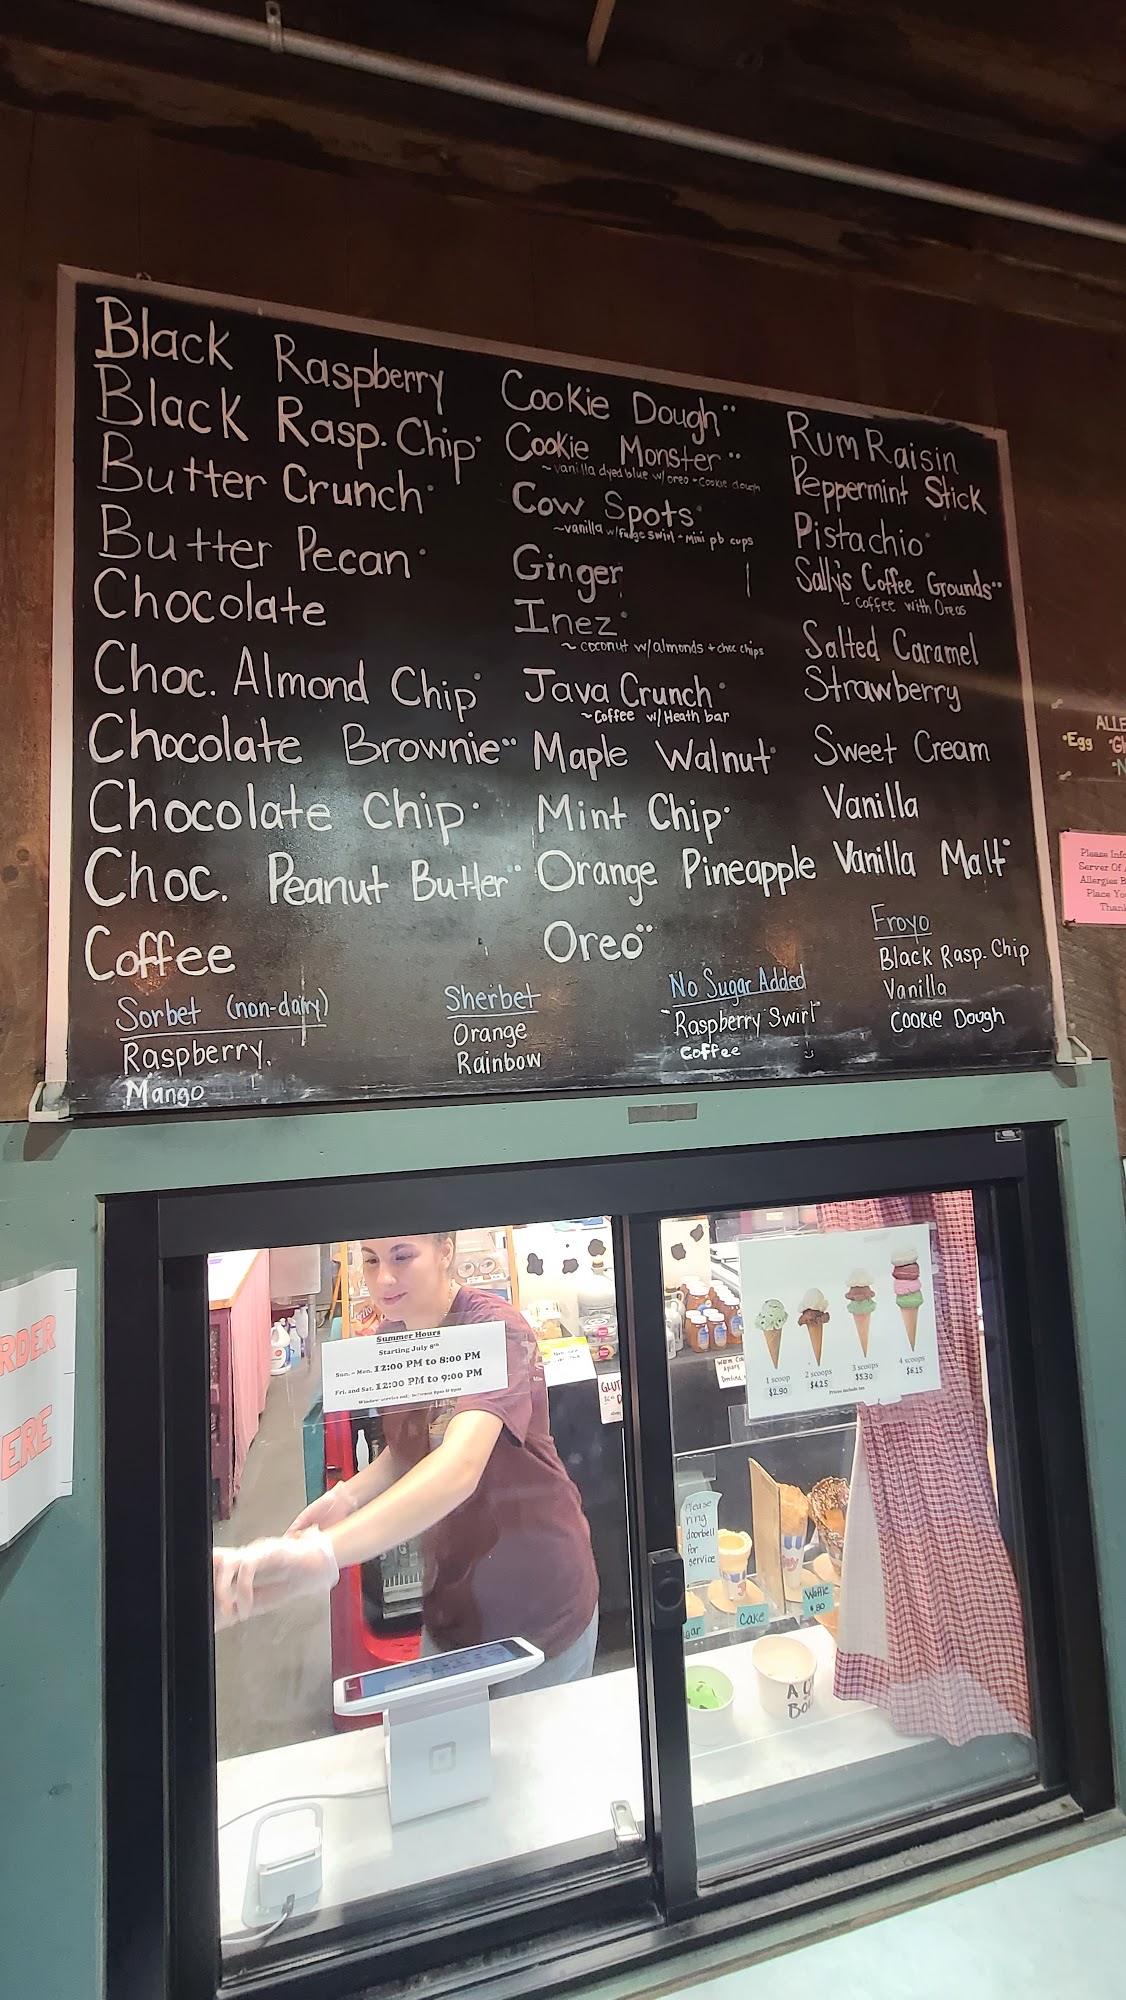 Black Raspberry
Black Rasp. Chip·
Butter Crunch·
Butter Pecan·
Chocolate
Choc. Almond Chip·
Chocolate Brownie··
Chocolate Chip·
Choc. Peanut Butter··
Coffee
Cookie Dough··
Cookie Monster··
~vanilla dyed blue w/oreo + cookie dough
Cow Spots·
~vanilla w/fudge swirl + mini pb cups
Ginger
Inez·
~ coconut w/almonds + choc chips
Java Crunch·
~Coffee w/Heath bar
Maple Walnut·
Mint Chip·
Orange Pineapple
Oreo··
Rum Raisin
Peppermint Stick
Pistachio·
Sally's Coffee Grounds··
~ Coffee with Oreos
Salted Caramel
Strawberry
Sweet Cream
Vanilla
Vanilla Malt··
Sorbet (non-dairy)
Raspberry
Mango
Sherbet
Orange
Rainbow
No Sugar Added
Raspberry Swirl
Coffee
Froyo
Black Rasp. Chip
Vanilla
Cookie Dough
·Egg
Please
Server Of
Allergies
Place
RDER
ERE
Summer Hours
Starting July 8th
Sun. – Mon. 12:00 PM to 8:00 PM
Fri. and Sat. 12:00 PM to 9:00 PM
1 scoop
$2.90
2 scoops
$4.25
3 scoops
$5.30
4 scoops
$6.15
Prices include tax
Please
ring
doorbell
for
service
Cake
Waffle
$.80